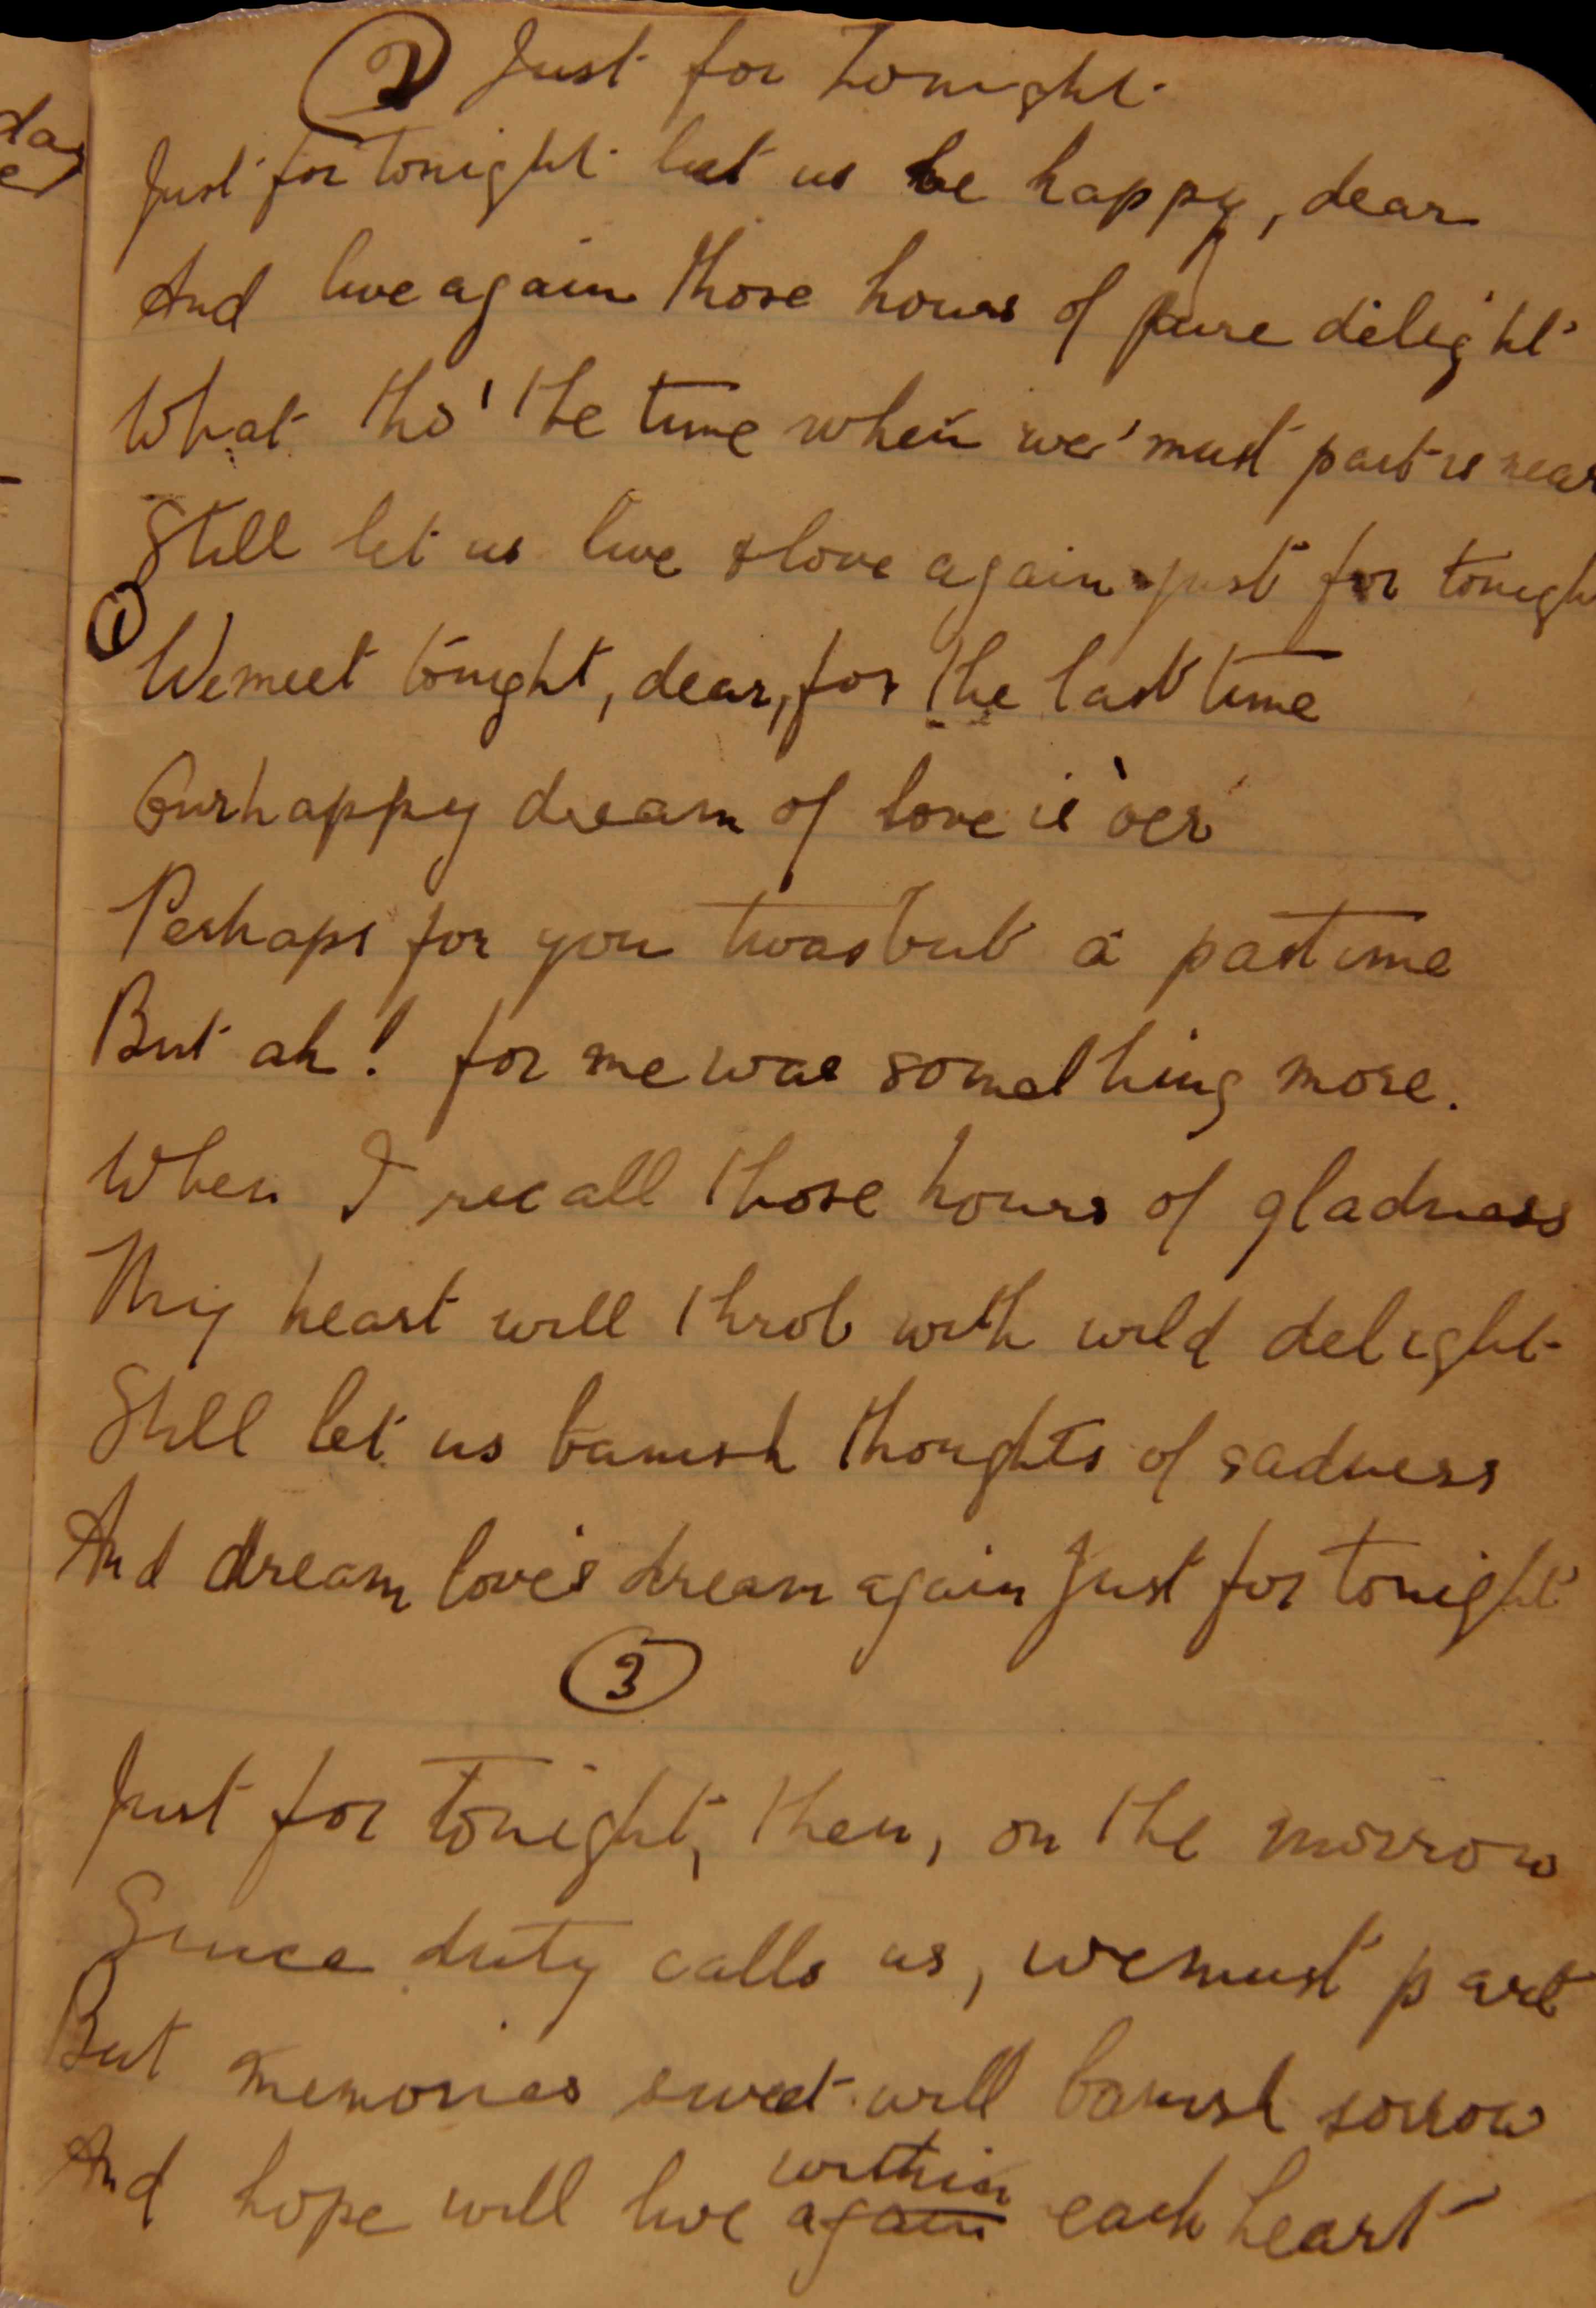 ② Just for tonight.
Just for tonight let us be happy, dear
And live again those hours of pure delight
What tho' the time when we must part is near
Still let us live & love again just for tonigh
① We meet tonight, dear, for the last time
Our happy dream of love is o'er
Perhaps for you twas but a pastime
But ah! for me was something more.
When I recall those hours of gladness
My heart will throb with wild delight
Still let us banish thoughts of sadness
And dream love's dream again Just for tonight
③
Just for tonight, then, on the morrow
Since duty calls us, we must part
But memories sweet will banish sorrow
And hope will live again within each heart